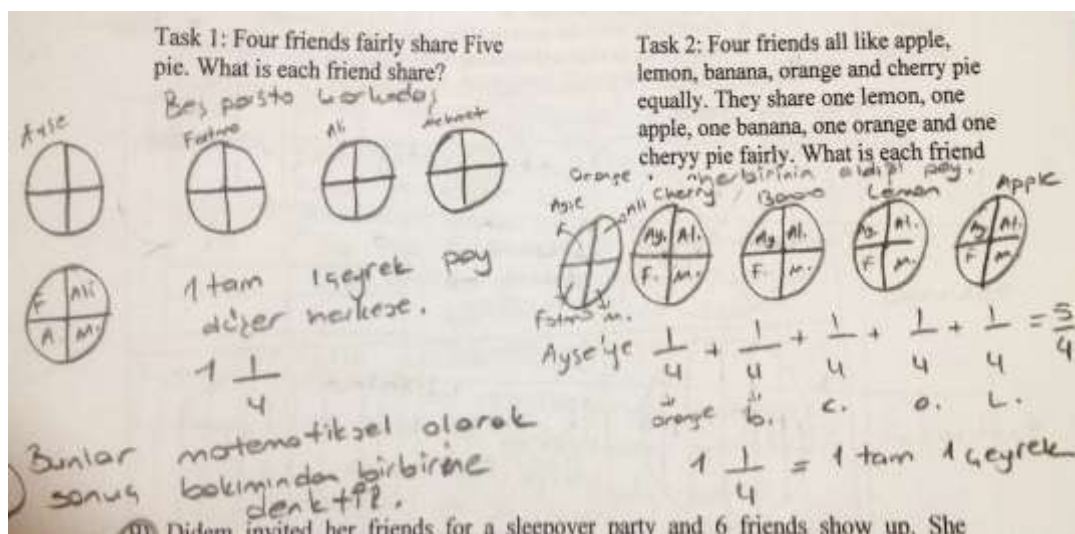 Task 1: Four friends fairly share Five
pie. What is each friend share?
Beş pasta 4 arkadaş
Ayşe
Fatma
Ali
Mehmet
F Ali
A M.
1 tam 1 çeyrek pay
düşer herkese.
1 1/4
Bunlar matematiksel olarak
sonuç bakımından birbirine
denktir.
Task 2: Four friends all like apple,
lemon, banana, orange and cherry pie
equally. They share one lemon, one
apple, one banana, one orange and one
cheryy pie fairly. What is each friend
herbirinin aldığı pay.
Orange Cherry Lemon Apple
Ayşe Ali
F
Fatma M.
Ay. Al.
F. M.
Ay Al.
F. M.
Ay. Al.
F M.
Ay Al.
F M.
Ayşe'ye 1/4 + 1/4 + 1/4 + 1/4 + 1/4 = 5/4
orange b. c. o. L.
1 1/4 = 1 tam 1 çeyrek
Didem invited her friends for a sleepover party and 6 friends show up. She